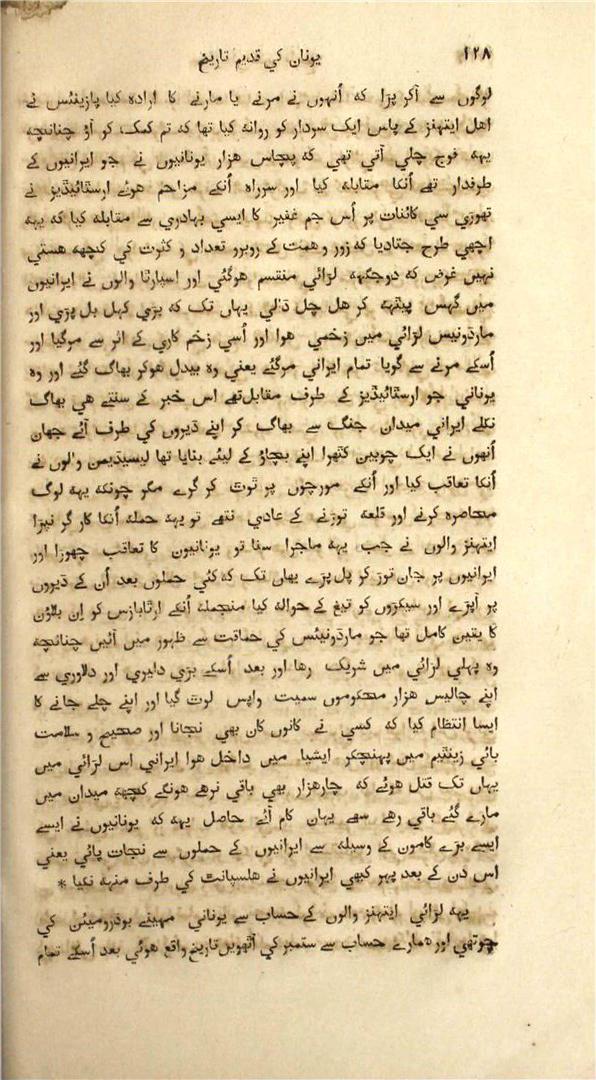 ۱۲۸ یونان کي قدیم تاریخ
لوگوں سے آکر پڑا که اُنہوں نے مرنے یا مارنے کا ارادہ کیا پازینئس نے
اهل ایتهنز کے پاس ایک سردار کو روانه کیا تها که تم کمک کو آؤ چنانچه
یہه فوج چلي آتي تهي که پچاس هزار یونانیوں نے جو ایرانیوں کے
طرفدار تهے اُنکا مقابله کیا اور سرراہ اُنکے مزاحم هوئے ارسٹائیڈیز نے
تهوڑي سي کائنات پر اُس جم غفیر کا ایسي بہادري سے مقابله کیا که یہه
اچهي طرح جتادیا که زور و همت کے روبرو تعداد و کثرت کي کچهه هستي
نہیں غرض که دوجگہه لڑائي منقسم هوگئي اور اسپارٹا والوں نے ایرانیوں
میں گهس پیٹهه کر هل چل ڈالي یہاں تک که بڑي کهل بل پڑي اور
مارڈونیس لڑائي میں زخمي هوا اور اُسي زخم کاري کے اثر سے مرگیا اور
اُسکے مرنے سے گویا تمام ایراني مرگئے یعني وہ بیدل هوکر بهاگ گئے اور وہ
یوناني جو ارسٹائیڈیز کے طرف مقابل تهے اس خبر کے سنتے هي بهاگ
نکلے ایراني میدان جنگ سے بهاگ کر اپنے ڈیروں کي طرف آئے جهان
اُنهوں نے ایک چوبین کٹهرا اپنے بچاؤ کے لیئے بنایا تها لیسیڈیمن والوں نے
اُنکا تعاقب کیا اور اُنکے مورچوں پر ٹوٹ کر گرے مگر چونکه یہه لوگ
محاصرہ کرنے اور قلعه توڑنے کے عادي نتهے تو یہه حمله اُنکا کار گر نپڑا
ایتهنز والوں نے جب یہه ماجرا سنا تو یونانیوں کا تعاقب چهوڑا اور
ایرانیوں پر جان توڑ کو پل پڑے یہاں تک که کئي حملوں بعد اُن کے ڈیروں
پر آپڑے اور سیکڑوں کو تیغ کے حواله کیا منجمله اُنکے ارٹابازس کو اِن بلاؤں
کا یقین کامل تها جو مارڈونیئس کي حماقت سے ظہور میں آئیں چنانچه
وہ پہلي لڑائي میں شریک رها اور بعد اُسکے بڑي دلیري اور دلاوري سے
اپنے چالیس هزار محکوموں سمیت واپس لوٹ گیا اور اپنے چلے جانے کا
ایسا انتظام کیا که کسي نے کانوں کان بهي نجانا اور صحیح و سلامت
بائي زینٹیم میں پہنچکر ایشیا میں داخل هوا ایراني اس لڑائي میں
یہاں تک قتل هوئے که چارهزار بهي باقي نرهے هونگے کچهه میدان میں
مارے گئے باقي رهے سہے یہاں کام آئے حاصل یہه که یونانیوں نے ایسے
ایسے بڑے کاموں کے وسیله سے ایرانیوں کے حملوں سے نجات پائي یعني
اس دن کے بعد پہر کبهي ایرانیوں نے هلسپانٹ کي طرف منہه نکیا *
یہه لڑائي ایتهنز والوں کے حساب سے یوناني مہینے بودرومیئن کي
چوتهي اور همارے حساب سے ستمبر کي آٹهویں تاریخ واقع هوئي بعد اُسکے تمام